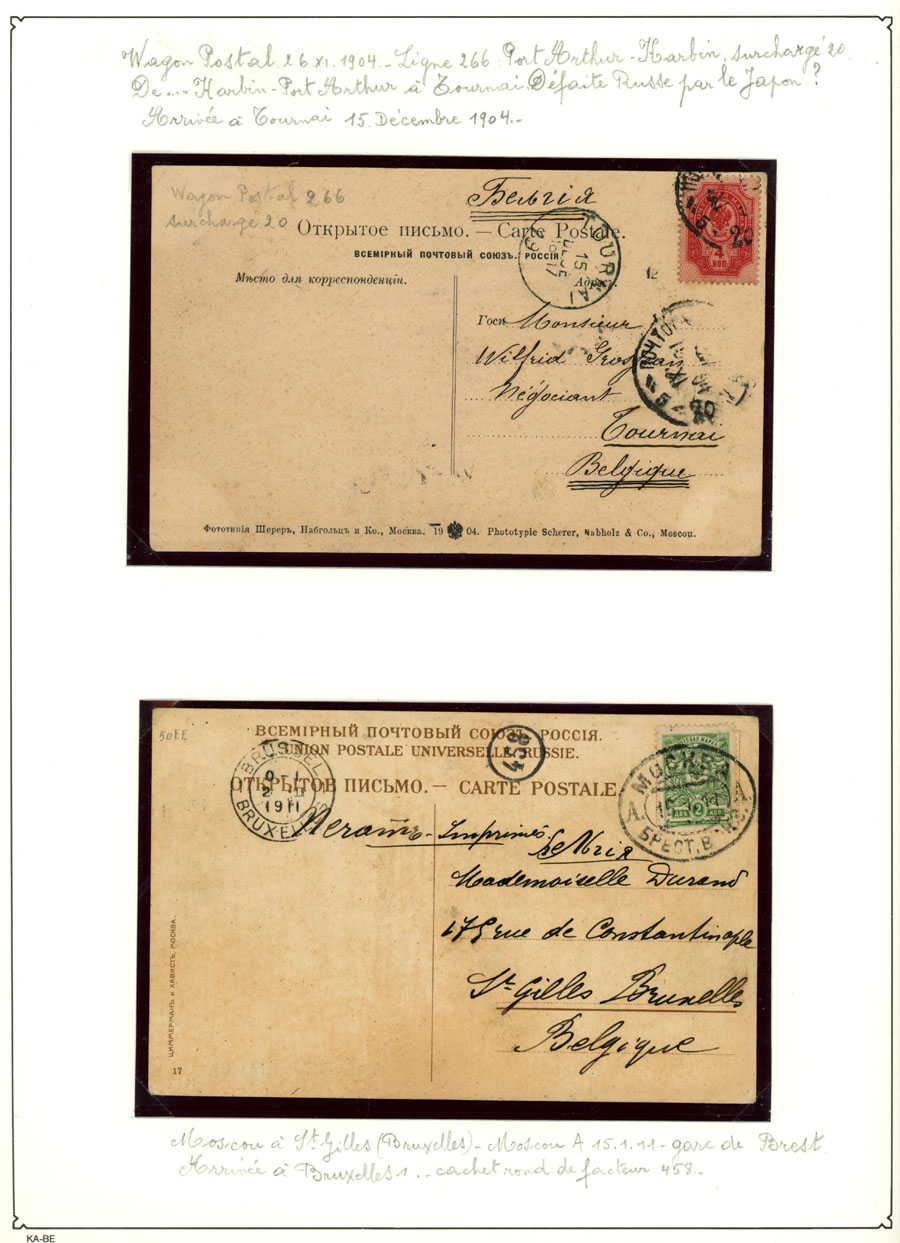 Wagon Postal 26 XI. 1904 - Ligne 266: Port Arthur - Karbin, surchargé 20.
De... Karbin - Port Arthur à Tournai. Défaite Russe par le Japon ?
Arrivée à Tournai 15. Décembre 1904.-
Wagon Postal 266
surchargé 20
Бельгiя
Открытое письмо. — Carte Postale.
ВСЕМІРНЫЙ ПОЧТОВЫЙ СОЮЗЪ. РОССІЯ
TOURNAI
15
DEC
Мѣсто для корреспонденціи.
Адресъ.
4
КОП
20
12
ПОЧТО
5 - 20
Госп
Monsieur
Wilfrid
Négociant
Tournai
Belgique
Фототипія Шереръ, Набгольцъ и Ко., Москва. 19 04. Phototypie Scherer, Nabholz & Co., Moscou.
50FE
ВСЕМІРНЫЙ ПОЧТОВЫЙ СОЮЗЪ. РОССІЯ.
UNION POSTALE UNIVERSELLE. RUSSIE.
ОТКРЫТОЕ ПИСЬМО. — CARTE POSTALE.
BRUSSEL
1911
BRUXELLES
МОСКВА
А. А.
2
БРЕСТ. В
Imprimés
Mademoiselle Durand
175 rue de Constantinople
St Gilles Bruxelles
Belgique
ЦИММЕРМАНЪ И ХАВИСТЪ, МОСКВА.
17
Moscou à St Gilles (Bruxelles) - Moscou A 15.1.11 - gare de Brest.
Arrivée à Bruxelles 1.. - cachet rond de facteur 458.-
KA-BE